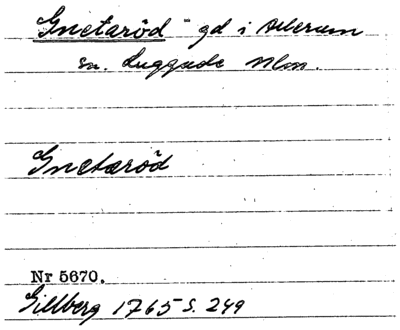 Gnetaröd gd i Allerum
sn. Luggude Mlm.
Gnetaröd
Nr 5670.
Gillberg 1765 S. 249